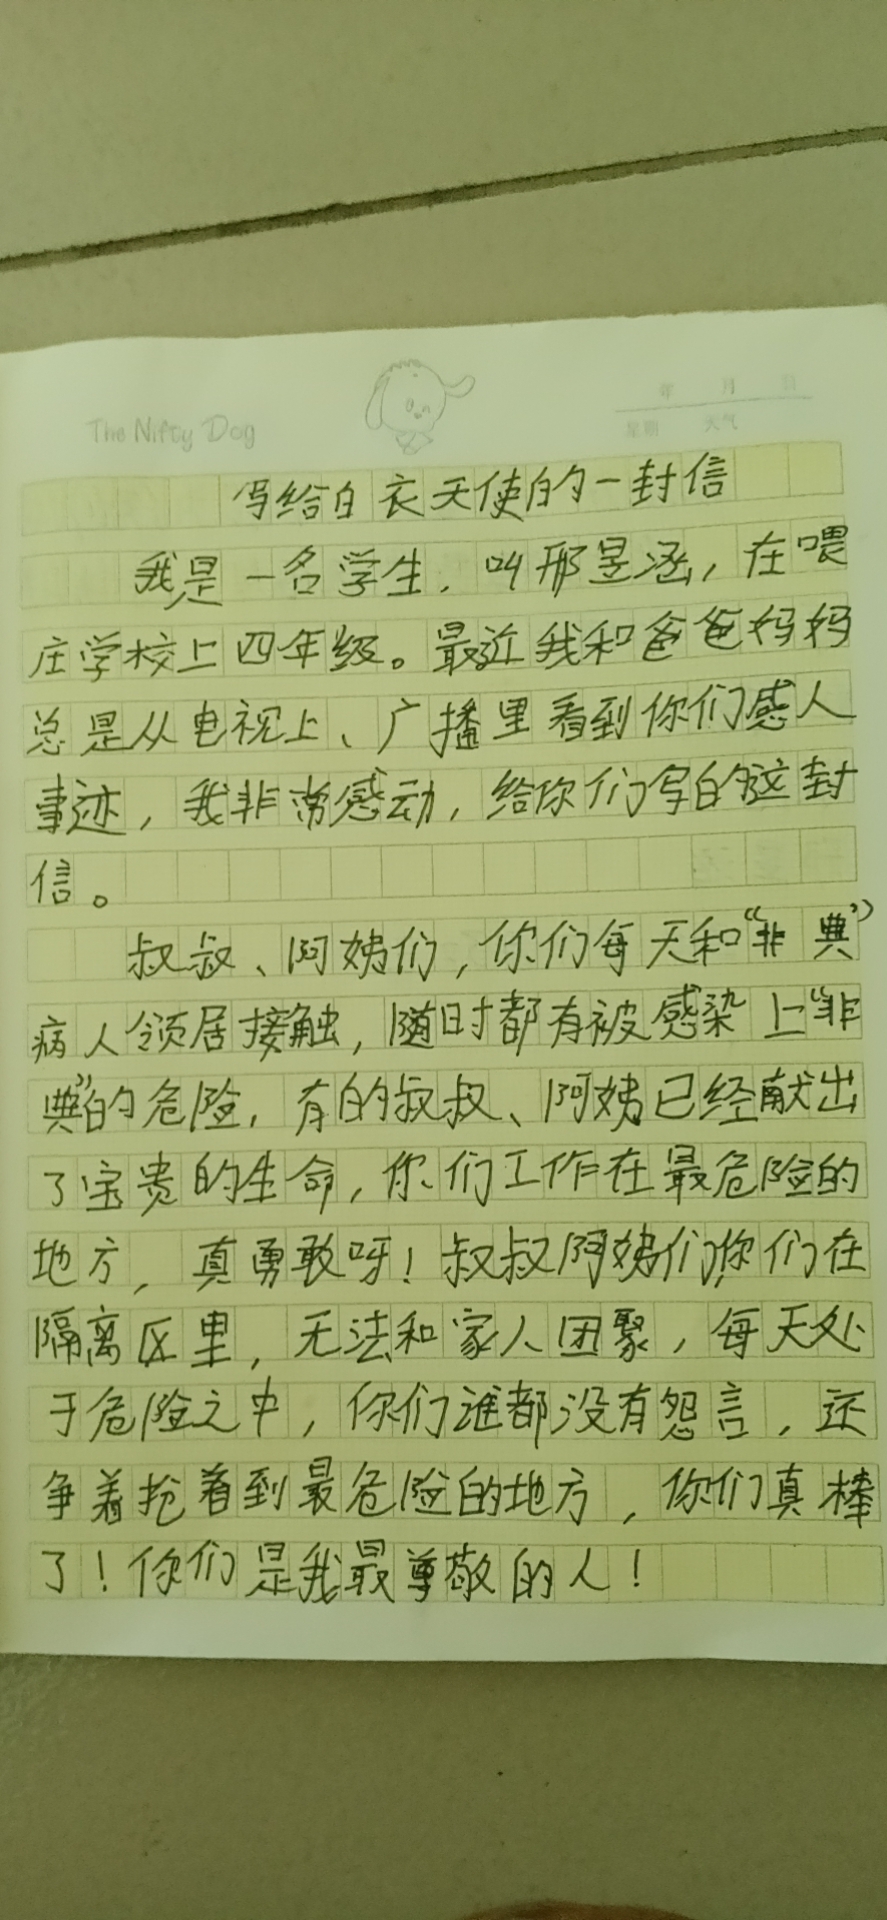 The Nifty Dog
年 月 日
星期 天气
写给白衣天使的一封信
我是一名学生，叫邢昱涵，在喂
庄学校上四年级。最近我和爸爸妈妈
总是从电视上、广播里看到你们感人
事迹，我非常感动，给你们写的这封
信。
叔叔、阿姨们，你们每天和“非典”
病人领居接触，随时都有被感染上“非
典”的危险，有的叔叔、阿姨已经献出
了宝贵的生命，你们工作在最危险的
地方，真勇敢呀！叔叔阿姨们你们在
隔离区里，无法和家人团聚，每天处
于危险之中，你们谁都没有怨言，还
争着抢着到最危险的地方，你们真棒
了！你们是我最尊敬的人！